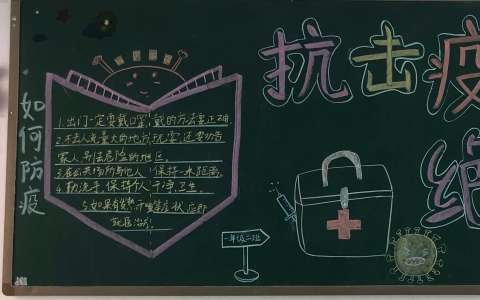 如何防疫
1.出门一定要戴口罩,戴的方法要正确
2.不去人流量大的地方玩耍,还要劝告
家人别去危险的地区。
3.在公共场所与他人保持一米距离。
4.勤洗手,保持个人干净卫生。
5.如果有发热,干咳等症状,应即
就医治疗。
一年级二班
抗击疫
绝